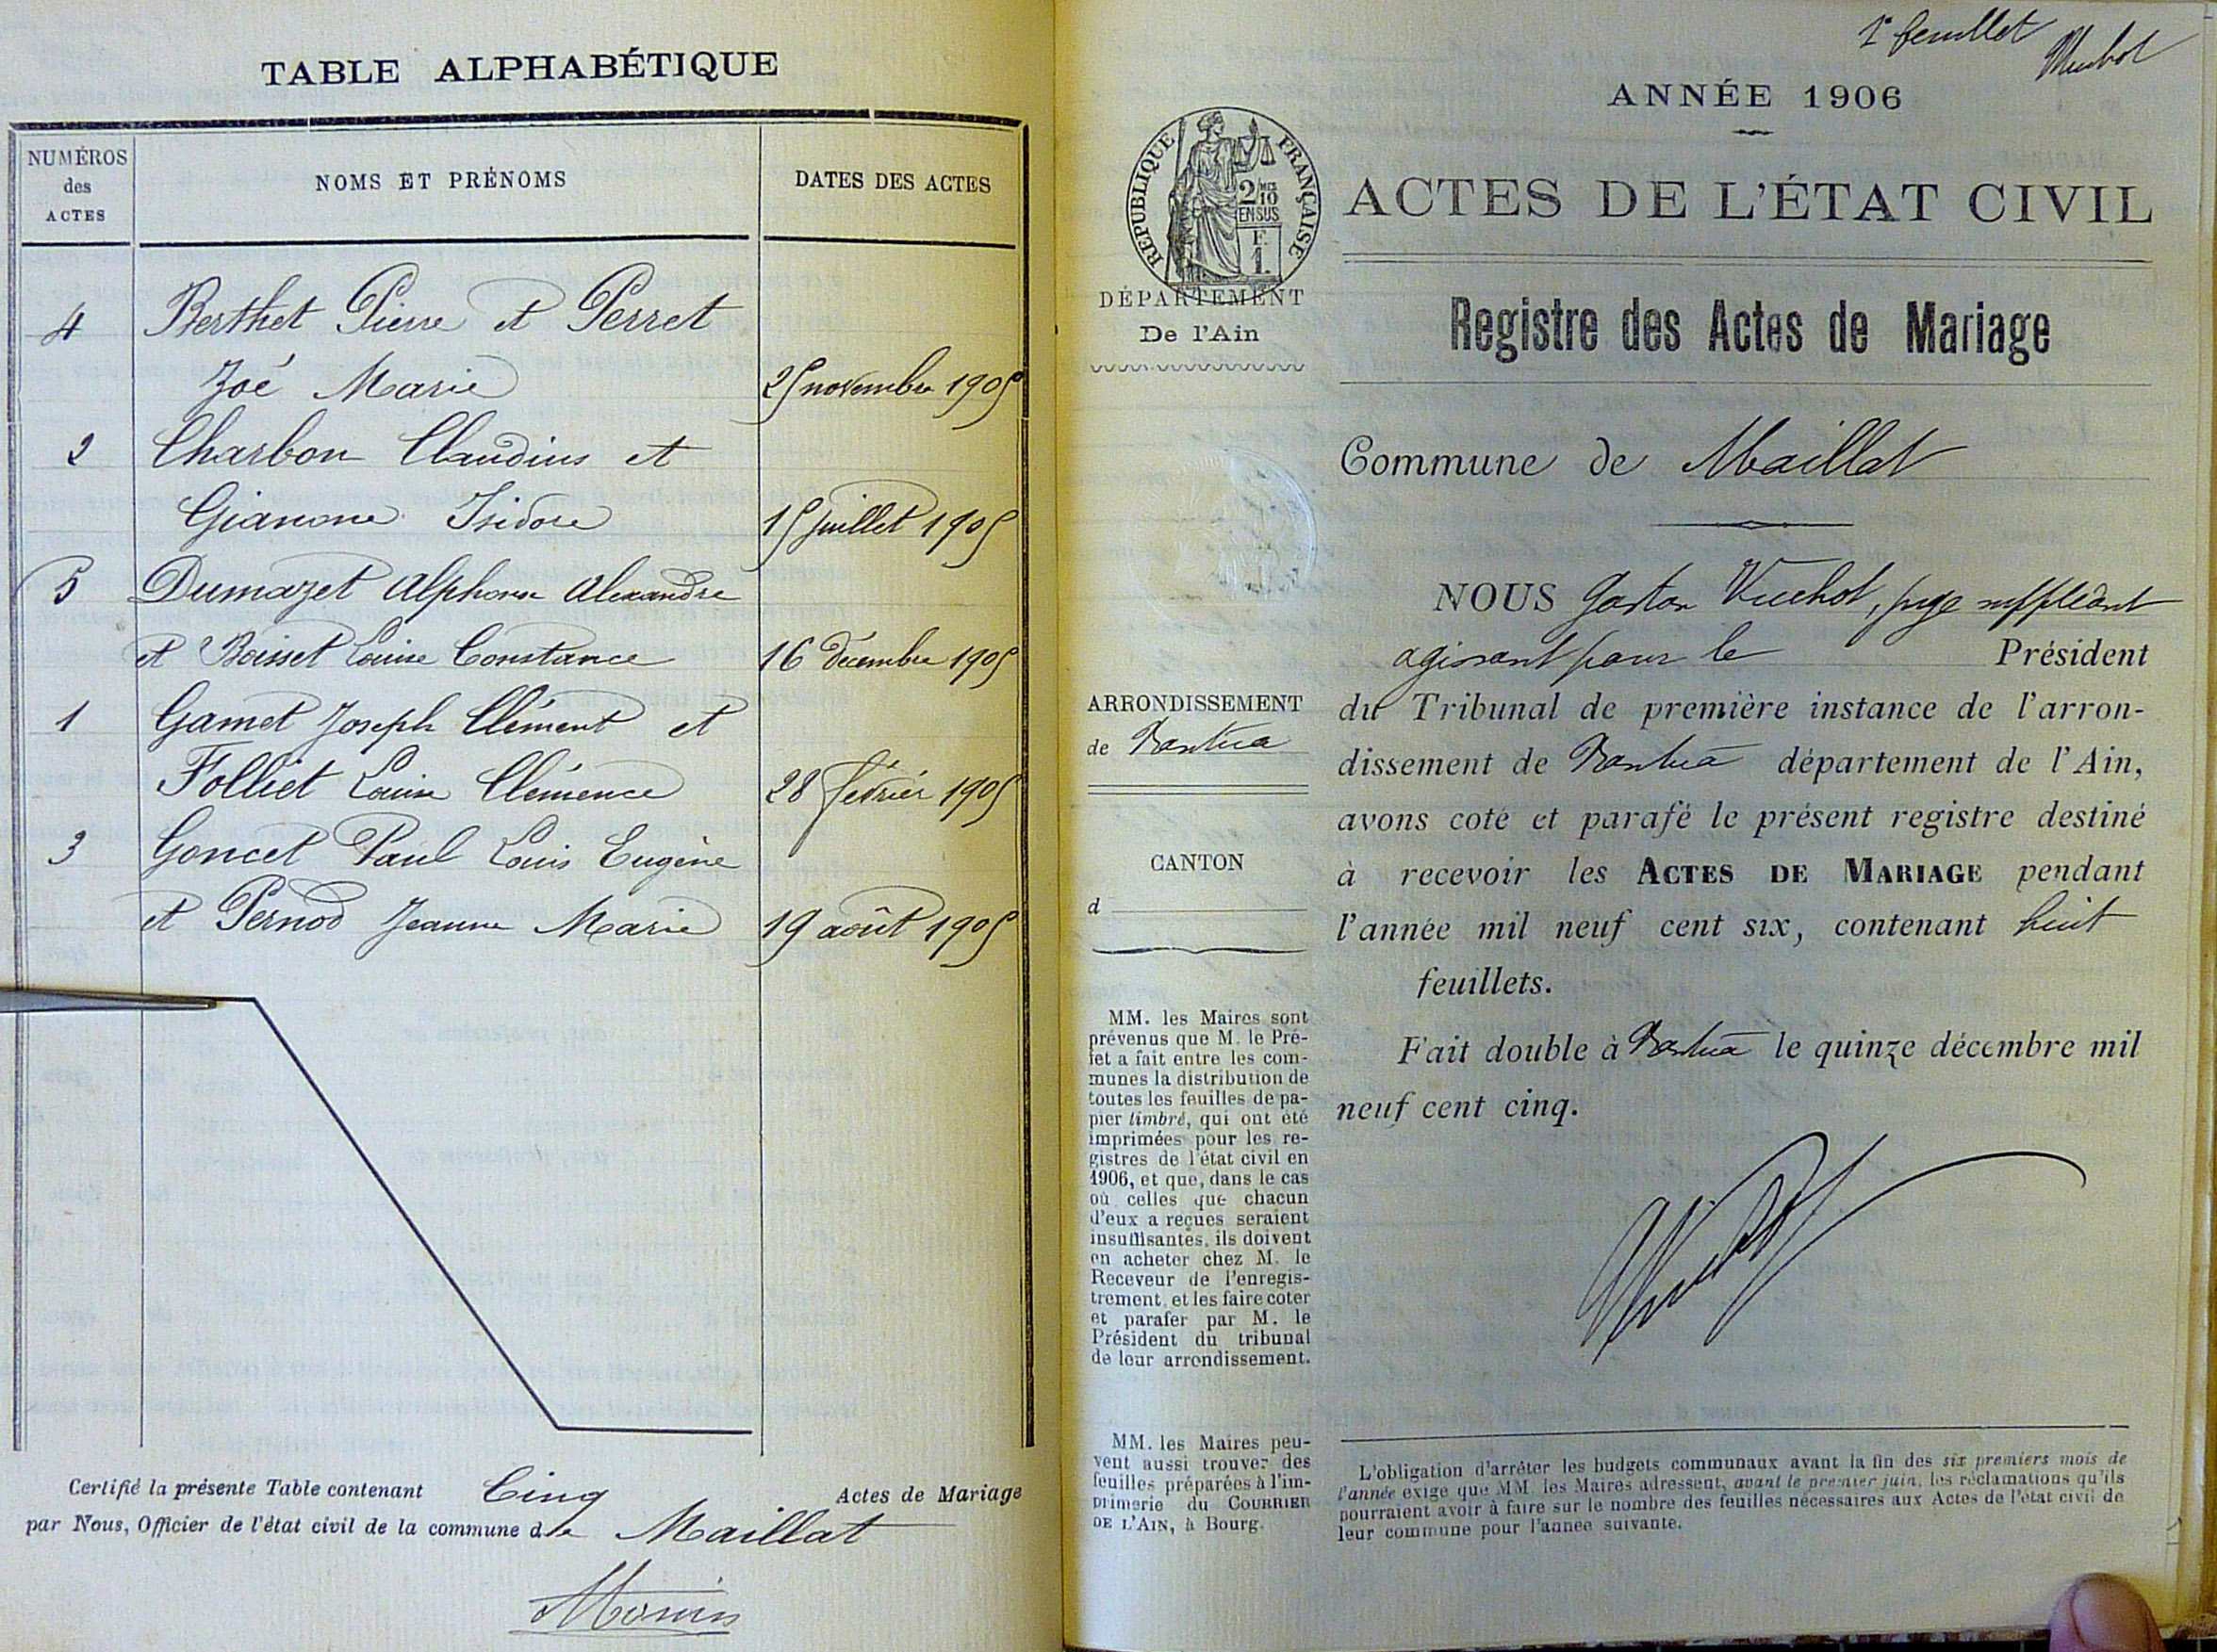 TABLE ALPHABÉTIQUE
NUMÉROS
des
ACTES
NOMS ET PRÉNOMS
DATES DES ACTES
4 Berthet Pierre et Perret
Zoé Marie 25 novembre 1905
2 Charbon Claudius et
Gianone Isidore 15 juillet 1905
5 Dumazet Alphonse Alexandre
et Boisset Louise Constance 16 décembre 1905
1 Gamet Joseph Clément et
Folliet Louise Clémence 28 février 1905
3 Goncet Paul Louis Eugène
et Pernod Jeanne Marie 19 août 1905
Certifié la présente Table contenant Cinq Actes de Mariage
par Nous, Officier de l'état civil de la commune de Maillat
1er feuillet
Vuchot
ANNÉE 1906
RÉPUBLIQUE FRANÇAISE
2/10
EN SUS
F.
1.
DÉPARTEMENT
De l'Ain
ACTES DE L'ÉTAT CIVIL
Registre des Actes de Mariage
Commune de Maillat
NOUS Gaston Vuchot, juge suppléant
agissant pour le Président
du Tribunal de première instance de l'arron-
dissement de Nantua département de l'Ain,
avons coté et parafé le présent registre destiné
à recevoir les ACTES DE MARIAGE pendant
l'année mil neuf cent six, contenant huit
feuillets.
Fait double à Nantua le quinze décembre mil
neuf cent cinq.
ARRONDISSEMENT
de Nantua
CANTON
d
MM. les Maires sont
prévenus que M. le Pré-
fet a fait entre les com-
munes la distribution de
toutes les feuilles de pa-
pier timbré, qui ont été
imprimées pour les re-
gistres de l'état civil en
1906, et que, dans le cas
où celles que chacun
d'eux a reçues seraient
insuffisantes, ils doivent
en acheter chez M. le
Receveur de l'enregis-
trement, et les faire coter
et parafer par M. le
Président du tribunal
de leur arrondissement.
MM. les Maires peu-
vent aussi trouver des
feuilles préparées à l'im-
primerie du COURRIER
DE L'AIN, à Bourg.
L'obligation d'arrêter les budgets communaux avant la fin des six premiers mois de
l'année exige que MM. les Maires adressent, avant le premier juin, les réclamations qu'ils
pourraient avoir à faire sur le nombre des feuilles nécessaires aux Actes de l'état civil de
leur commune pour l'année suivante.